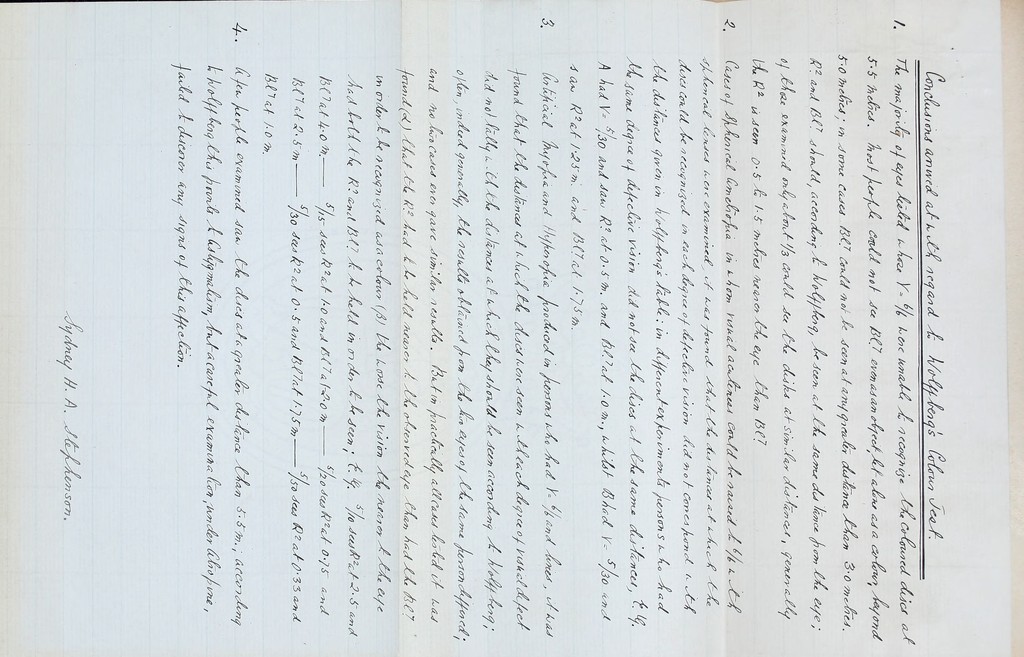 Conclusions arrived at with regard to Wolffberg's Colour Test.
1. The majority of eyes tested whose V = 6/6 were unable to recognize the coloured discs at
5.5 metres. Most people could not see Bl? even as an object, let alone as a colour, beyond
5.0 metres, in some cases Bl? could not be seen at any greater distance than 3.0 metres.
R² and Bl? should, according to Wolffberg, be seen at the same distance from the eye;
of those examined only about 1/3 could see the disks at similar distances, generally
the R² is seen 0.5 to 1.5 metres nearer the eye than Bl?
2. Cases of Spherical Ametropia in whom visual acuteness could be raised to 6/6 with
spherical lenses were examined, it was found that the distances at which the
discs could be recognised in each degree of defective vision did not correspond with
the distances given in Wolffberg's table. In different experiments persons who had
the same degree of defective vision did not see the discs at the same distances, e.g.
A had V = 5/30 and saw R² at 0.5 m. and Bl? at 1.0 m, whilst B had V = 5/30 and
saw R² at 1.2 m. and Bl? at 1.75 m.
3. Artificial Myopia and Hyperopia produced in persons who had V = 6/6 and lenses, it was
found that the distances at which the discs were seen with each degree of visual defect
did not tally with the distances at which they should be seen according to Wolffberg;
often, indeed generally, the results obtained from the two eyes of the same person differed,
and no two cases even gave similar results. But in practically all cases tested it was
found (α) that the R² had to be held nearer to the observed eye than had the Bl?
in order to be recognized as a colour (β) the worse the vision the nearer to the eye
had both the R² and Bl? to be held in order to be seen; e.g. 5/10 sees R² at 2.5 and
Bl? at 4.0 m. — 5/15 sees R² at 1.0 and Bl? at 2.0 m — 5/20 sees R² at 0.75 and
Bl? at 2.5 m — 5/30 sees R² at 0.5 and Bl? at 1.75 m — 5/50 sees R² at 0.33 and
Bl? at 1.0 m.
4. A few people examined saw the discs at a greater distance than 5.5 m; according
to Wolffberg this points to Astigmatism, but a careful examination, under Atropine,
failed to discover any signs of this affection.
Sydney H. A. Stephenson.